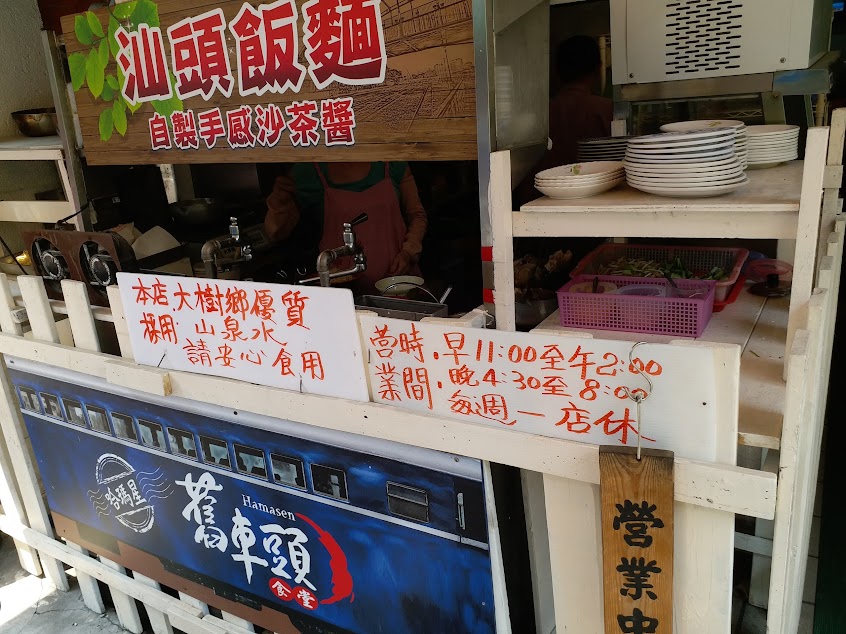 汕頭飯麵
自製手感沙茶醬
本店.大樹鄉優質
採用.山泉水
請安心食用
營時.早11:00至午2:00
業間.晚4:30至8:00
每週一店休
哈瑪屋
Hamasen
舊車頭
食堂
營業中